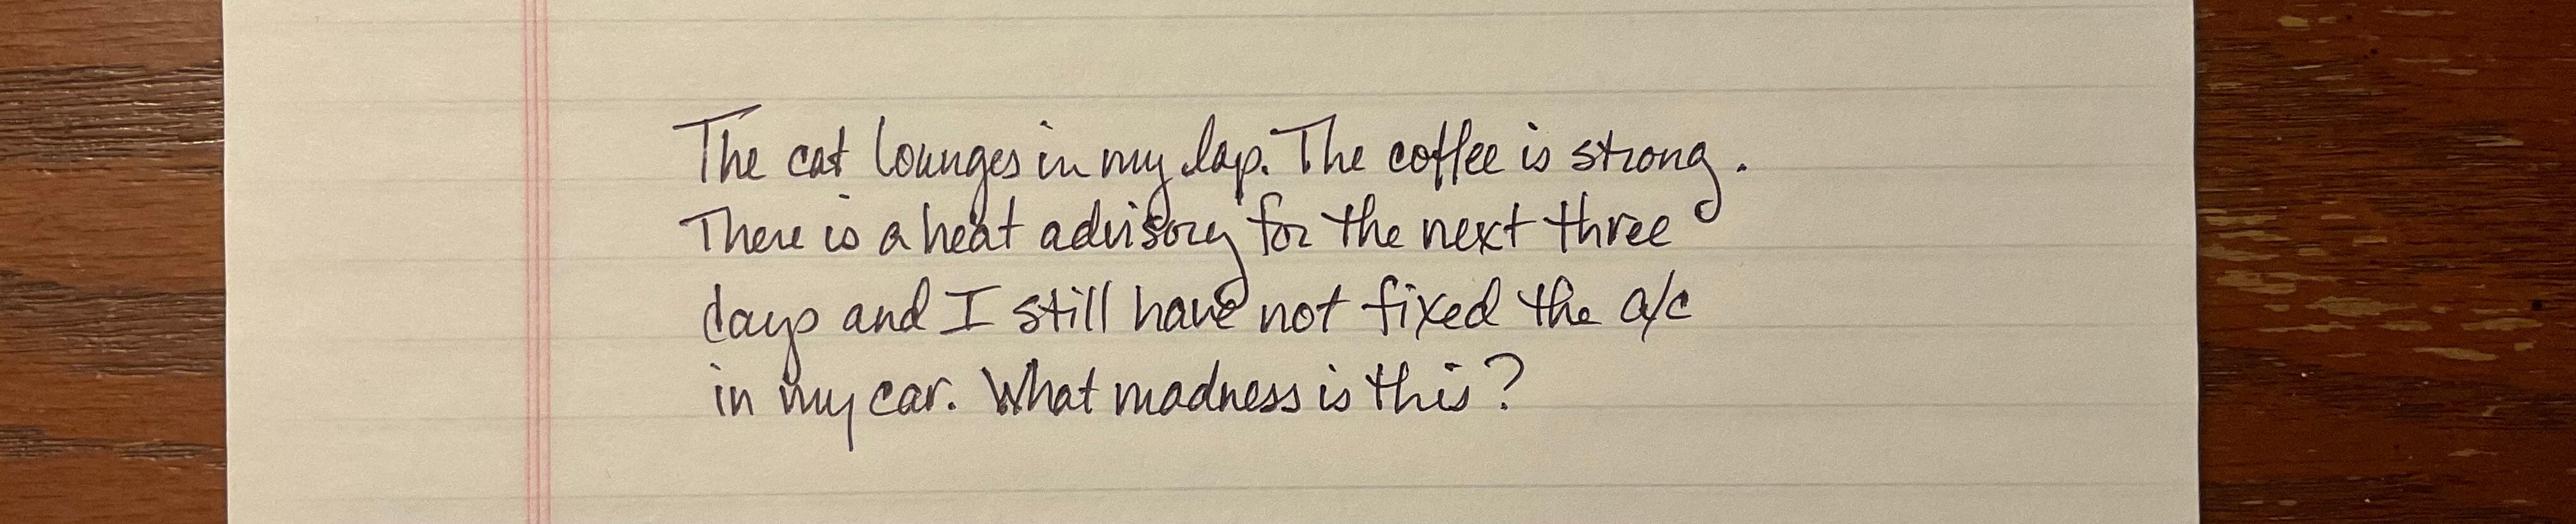 The cat lounges in my lap. The coffee is strong.
There is a heat advisory for the next three
days and I still have not fixed the a/c
in my car. What madness is this?